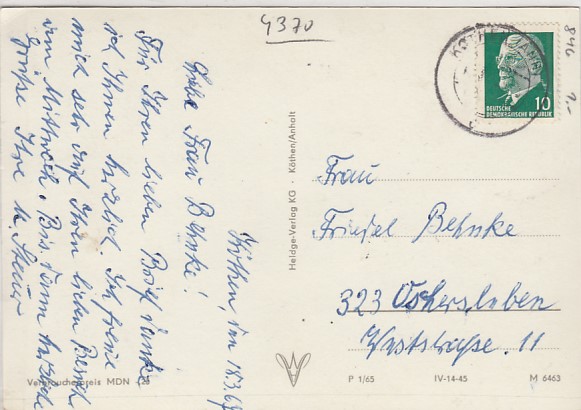 4370
846
1.-
KÖTHEN (ANH)
10
DEUTSCHE
DEMOKRATISCHE REPUBLIK
Köthen, den 18.3.67
Liebe Frau Behnke!
Für Ihren lieben Brief danke
ich Ihnen herzlich. Ich freue
mich sehr auf Ihren lieben Besuch
am Mittwoch. Bis dann herzliche
Grüße Ihre
Heldge-Verlag KG · Köthen/Anhalt
Frau
Friedel Behnke
323 Oschersleben
Weststraße. 11
Verbraucherpreis MDN
P 1/65
IV-14-45
M 6463